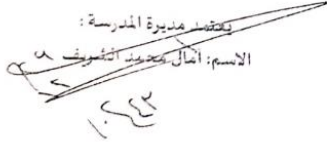 يعتمد مديرة المدرسة :
الاسم: آمال محمد الشريف